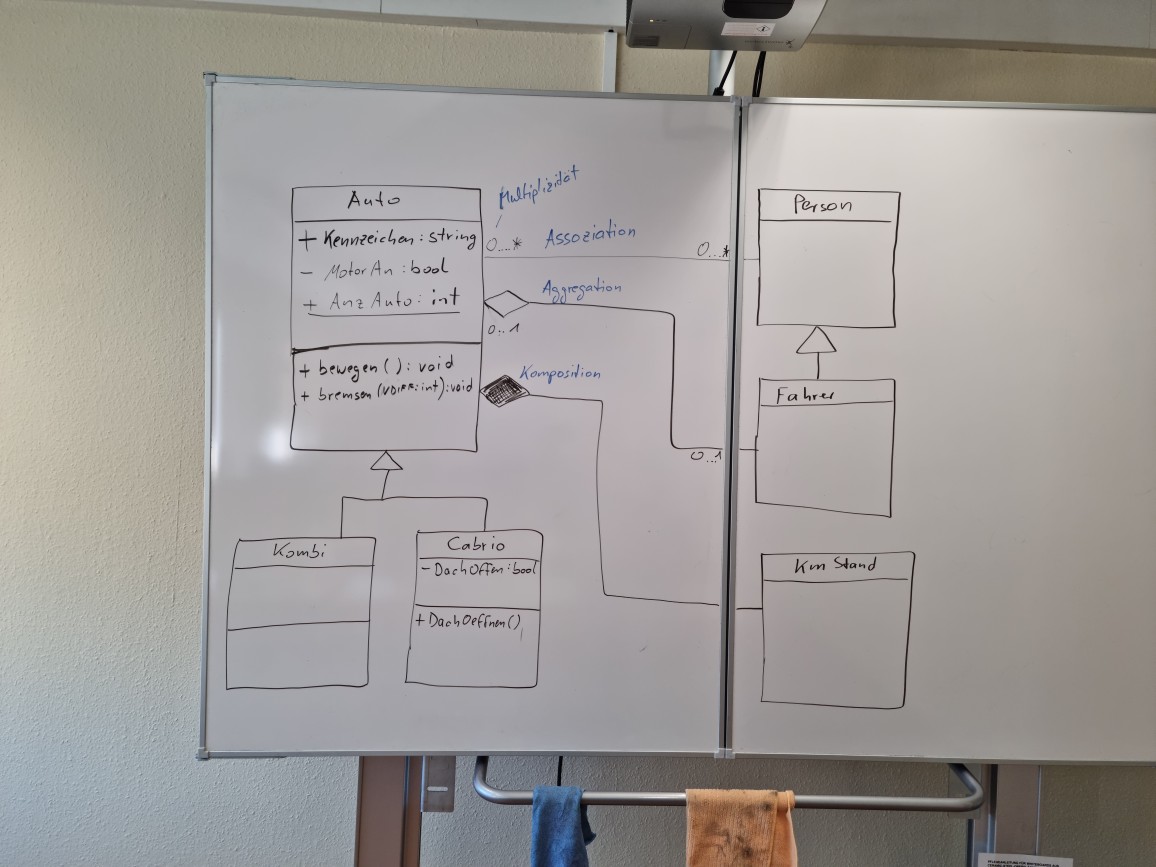 Auto
+ Kennzeichen: string
- MotorAn: bool
+ AnzAuto: int
+ bewegen(): void
+ bremsen(VDIFF: int): void
Multiplizität
0...*
Assoziation
0...*
Aggregation
0..1
0..1
Komposition
Person
Fahrer
Km Stand
Kombi
Cabrio
- DachOffen: bool
+ DachOeffnen()